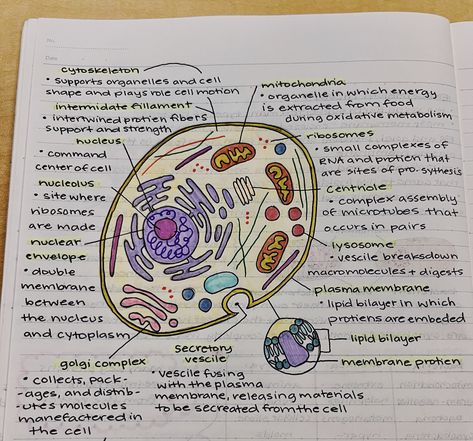 No.
Date
cytoskeleton
• supports organelles and cell
shape and plays role cell motion
intermidate fillament
• intertwined protien fibers
support and strength
nucleus
• command
center of cell
nucleolus
• site where
ribosomes
are made
nuclear
envelope
• double
membrane
between
the nucleus
and cytoplasm
golgi complex
• collects, pack-
-ages, and distrib-
-utes molecules
manefactored in
the cell
secretory
vescile
• vescile fusing
with the plasma
membrane, releasing materials
to be secreated from the cell
mitochondria
• organelle in which energy
is extracted from food
during oxidative metabolism
ribosomes
• small complexes of
RNA and protien that
are sites of pro. sythesis
centriole
• complex assembly
of microtubes that
occurs in pairs
lysosome
• vescile breakdown
macromolecules + digests
plasma membrane
• lipid bilayer in which
protiens are embeded
lipid bilayer
membrane protien